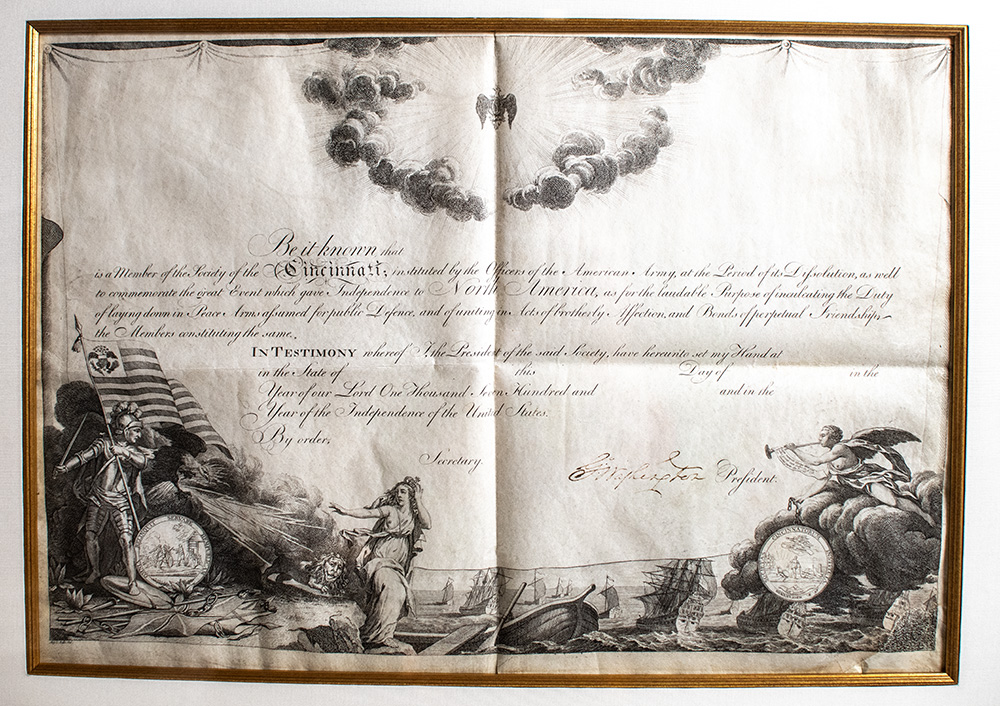 Be it known that
is a Member of the Society of the Cincinnati; instituted by the Officers of the American Army, at the Period of its Dissolution, as well
to commemorate the great Event which gave Independence to North America, as for the laudable Purpose of inculcating the Duty
of laying down in Peace Arms assumed for public Defence, and of uniting in Acts of brotherly Affection, and Bonds of perpetual Friendship,
the Members constituting the same.
IN TESTIMONY whereof I, the President of the said Society, have hereunto set my Hand at
in the State of this Day of in the
Year of our Lord One Thousand Seven Hundred and and in the
Year of the Independence of the United States.
By order,
Secretary.
G:Washington President.